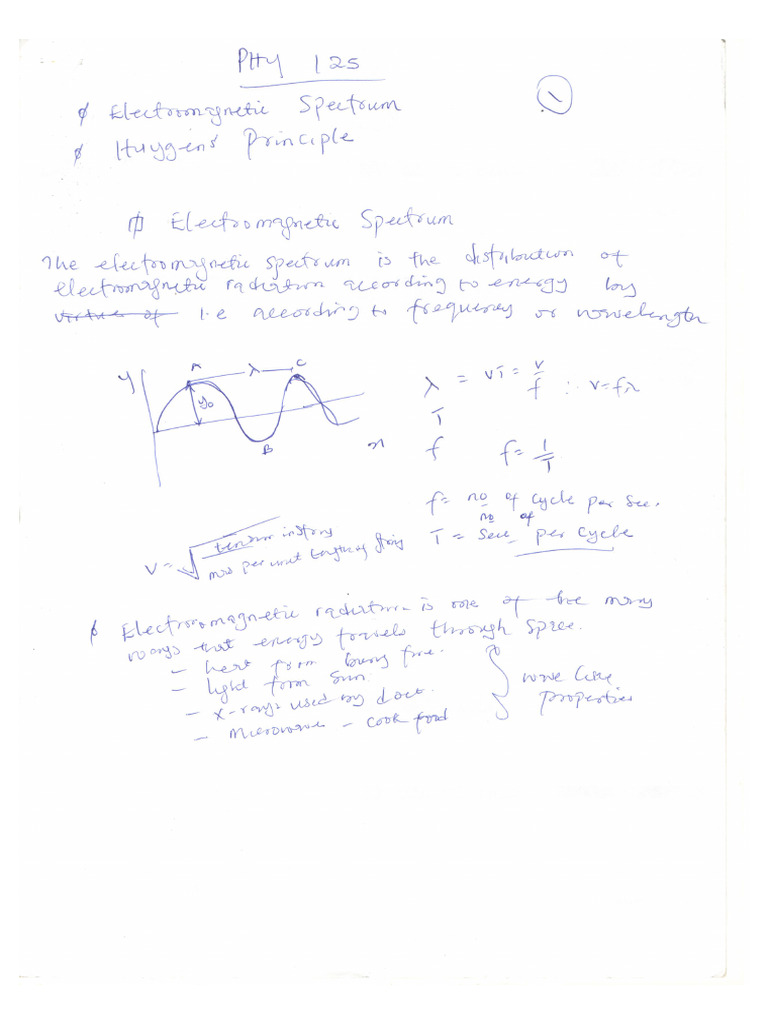 PHY 125
1
ϕ Electromagnetic Spectrum
ϕ Huygens' Principle
Electromagnetic Spectrum
The electromagnetic spectrum is the distribution of
electromagnetic radiation according to energy by
virtue of i.e according to frequency or wavelength
y A λ C
y₀
B
x
λ = vT = v/f ∴ v=fλ
T
f f= 1/T
f= no of cycle per sec.
no of
T = sec per cycle
V = √ tension in string / mass per unit length of string
ϕ Electroromagnetic radiation is one of the many
ways that energy travels through space.
- heat from burng fire.
- light form sun.
- x-rays used by doct.
- Microwave - cook food
wave like
properties